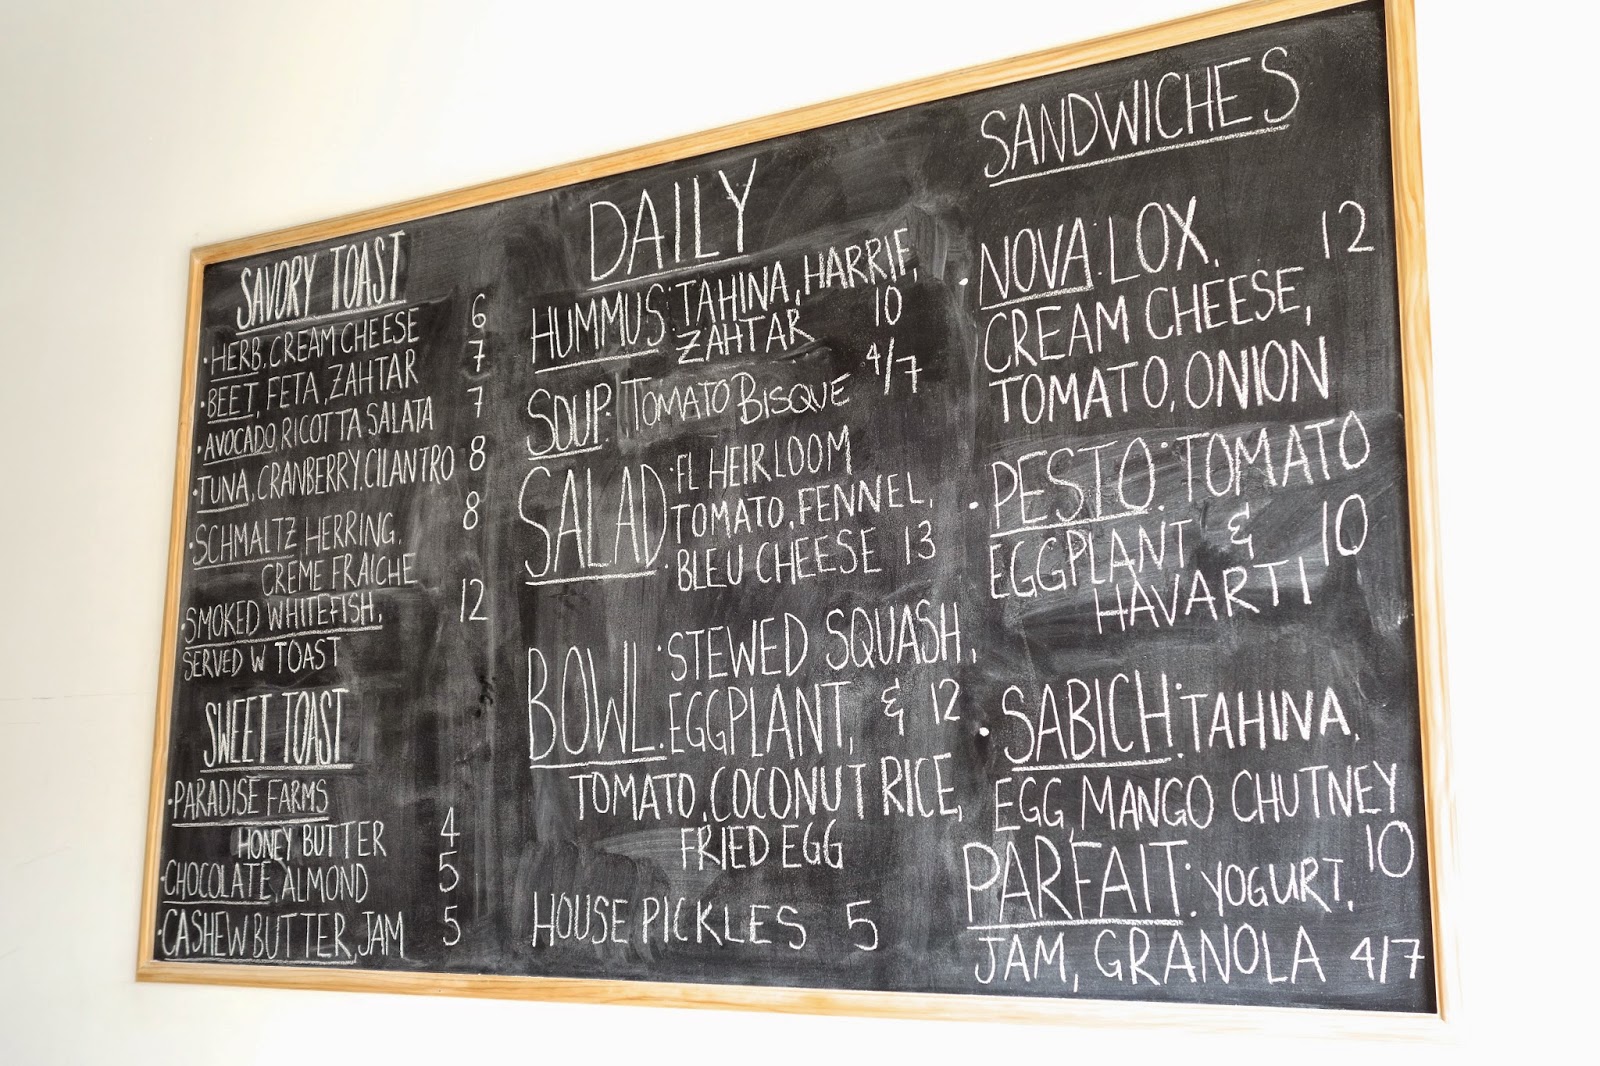 SAVORY TOAST
• HERB, CREAM CHEESE 6
• BEET, FETA, ZAHTAR 7
• AVOCADO, RICOTTA SALATA 7
• TUNA, CRANBERRY, CILANTRO 8
• SCHMALTZ HERRING, 8
CREME FRAICHE
• SMOKED WHITEFISH, 12
SERVED W TOAST
SWEET TOAST
• PARADISE FARMS
HONEY BUTTER 4
• CHOCOLATE, ALMOND 5
• CASHEW BUTTER, JAM 5
DAILY
HUMMUS: TAHINA, HARRIF,
ZAHTAR 10
SOUP: TOMATO BISQUE 4/7
SALAD: FL HEIRLOOM
TOMATO, FENNEL,
BLEU CHEESE 13
BOWL: STEWED SQUASH,
EGGPLANT, & 12
TOMATO, COCONUT RICE,
FRIED EGG
HOUSE PICKLES 5
SANDWICHES
• NOVA: LOX, 12
CREAM CHEESE,
TOMATO, ONION
• PESTO: TOMATO
EGGPLANT & 10
HAVARTI
• SABICH: TAHINA,
EGG, MANGO CHUTNEY
10
PARFAIT: YOGURT,
JAM, GRANOLA 4/7